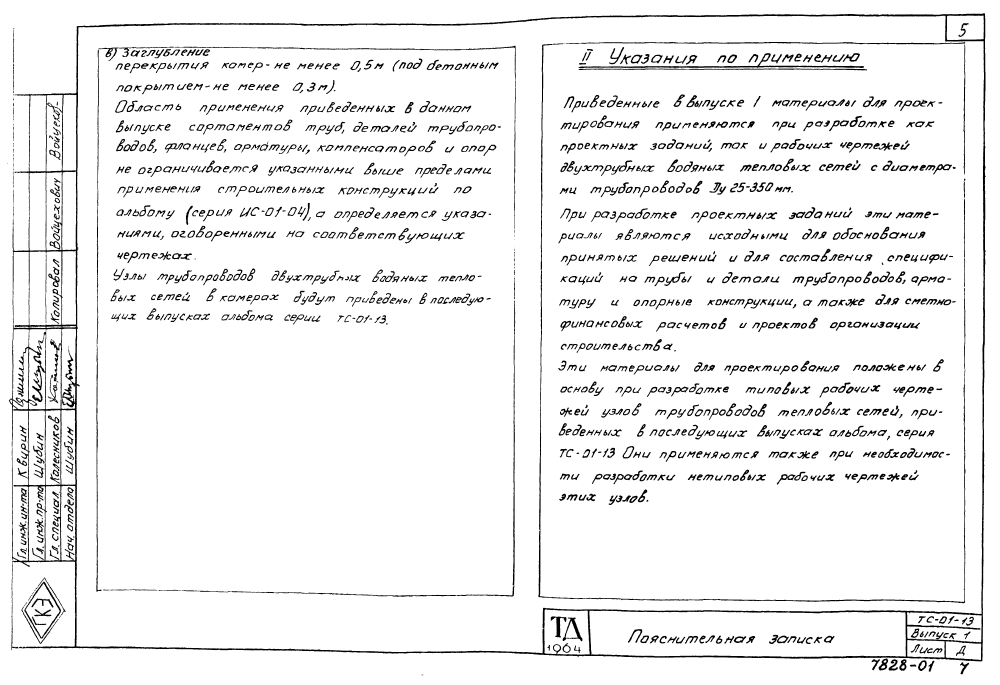 5
в) Заглубление
перекрытия камер-не менее 0,5м (под бетонным
покрытием-не менее 0,3м).
Область применения приведенных в данном
выпуске сортаментов труб, деталей трубопро-
водов, фланцев, арматуры, компенсаторов и опор
не ограничивается указанными выше пределами
применения строительных конструкций по
альбому (серия ИС-01-04), а определяется указа-
ниями, оговоренными на соответствующих
чертежах.
Узлы трубопроводов двухтрубных водяных тепло-
вых сетей в камерах будут приведены в последую-
щих выпусках альбома серии ТС-01-13.
II Указания по применению
Приведенные в выпуске 1 материалы для проек-
тирования применяются при разработке как
проектных заданий, так и рабочих чертежей
двухтрубных водяных тепловых сетей с диаметра-
ми трубопроводов Ду 25-350 мм.
При разработке проектных заданий эти мате-
риалы являются исходными для обоснования
принятых решений и для составления специфи-
каций на трубы и детали трубопроводов, арма-
туру и опорные конструкции, а также для сметно-
финансовых расчетов и проектов организации
строительства.
Эти материалы для проектирования положены в
основу при разработке типовых рабочих черте-
жей узлов трубопроводов тепловых сетей, при-
веденных в последующих выпусках альбома, серия
ТС-01-13 Они применяются также при необходимос-
ти разработки нетиповых рабочих чертежей
этих узлов.
Гл. инж. ин-та Квирин
Гл. инж. пр-та Шубин
Гл. специал. Колесников
Нач. отдела Шубин
Копировал Войцехович Войцехов-
ГКЭ
ТД
1964
Пояснительная записка
ТС-01-13
Выпуск 1
Лист Д
7828-01 7